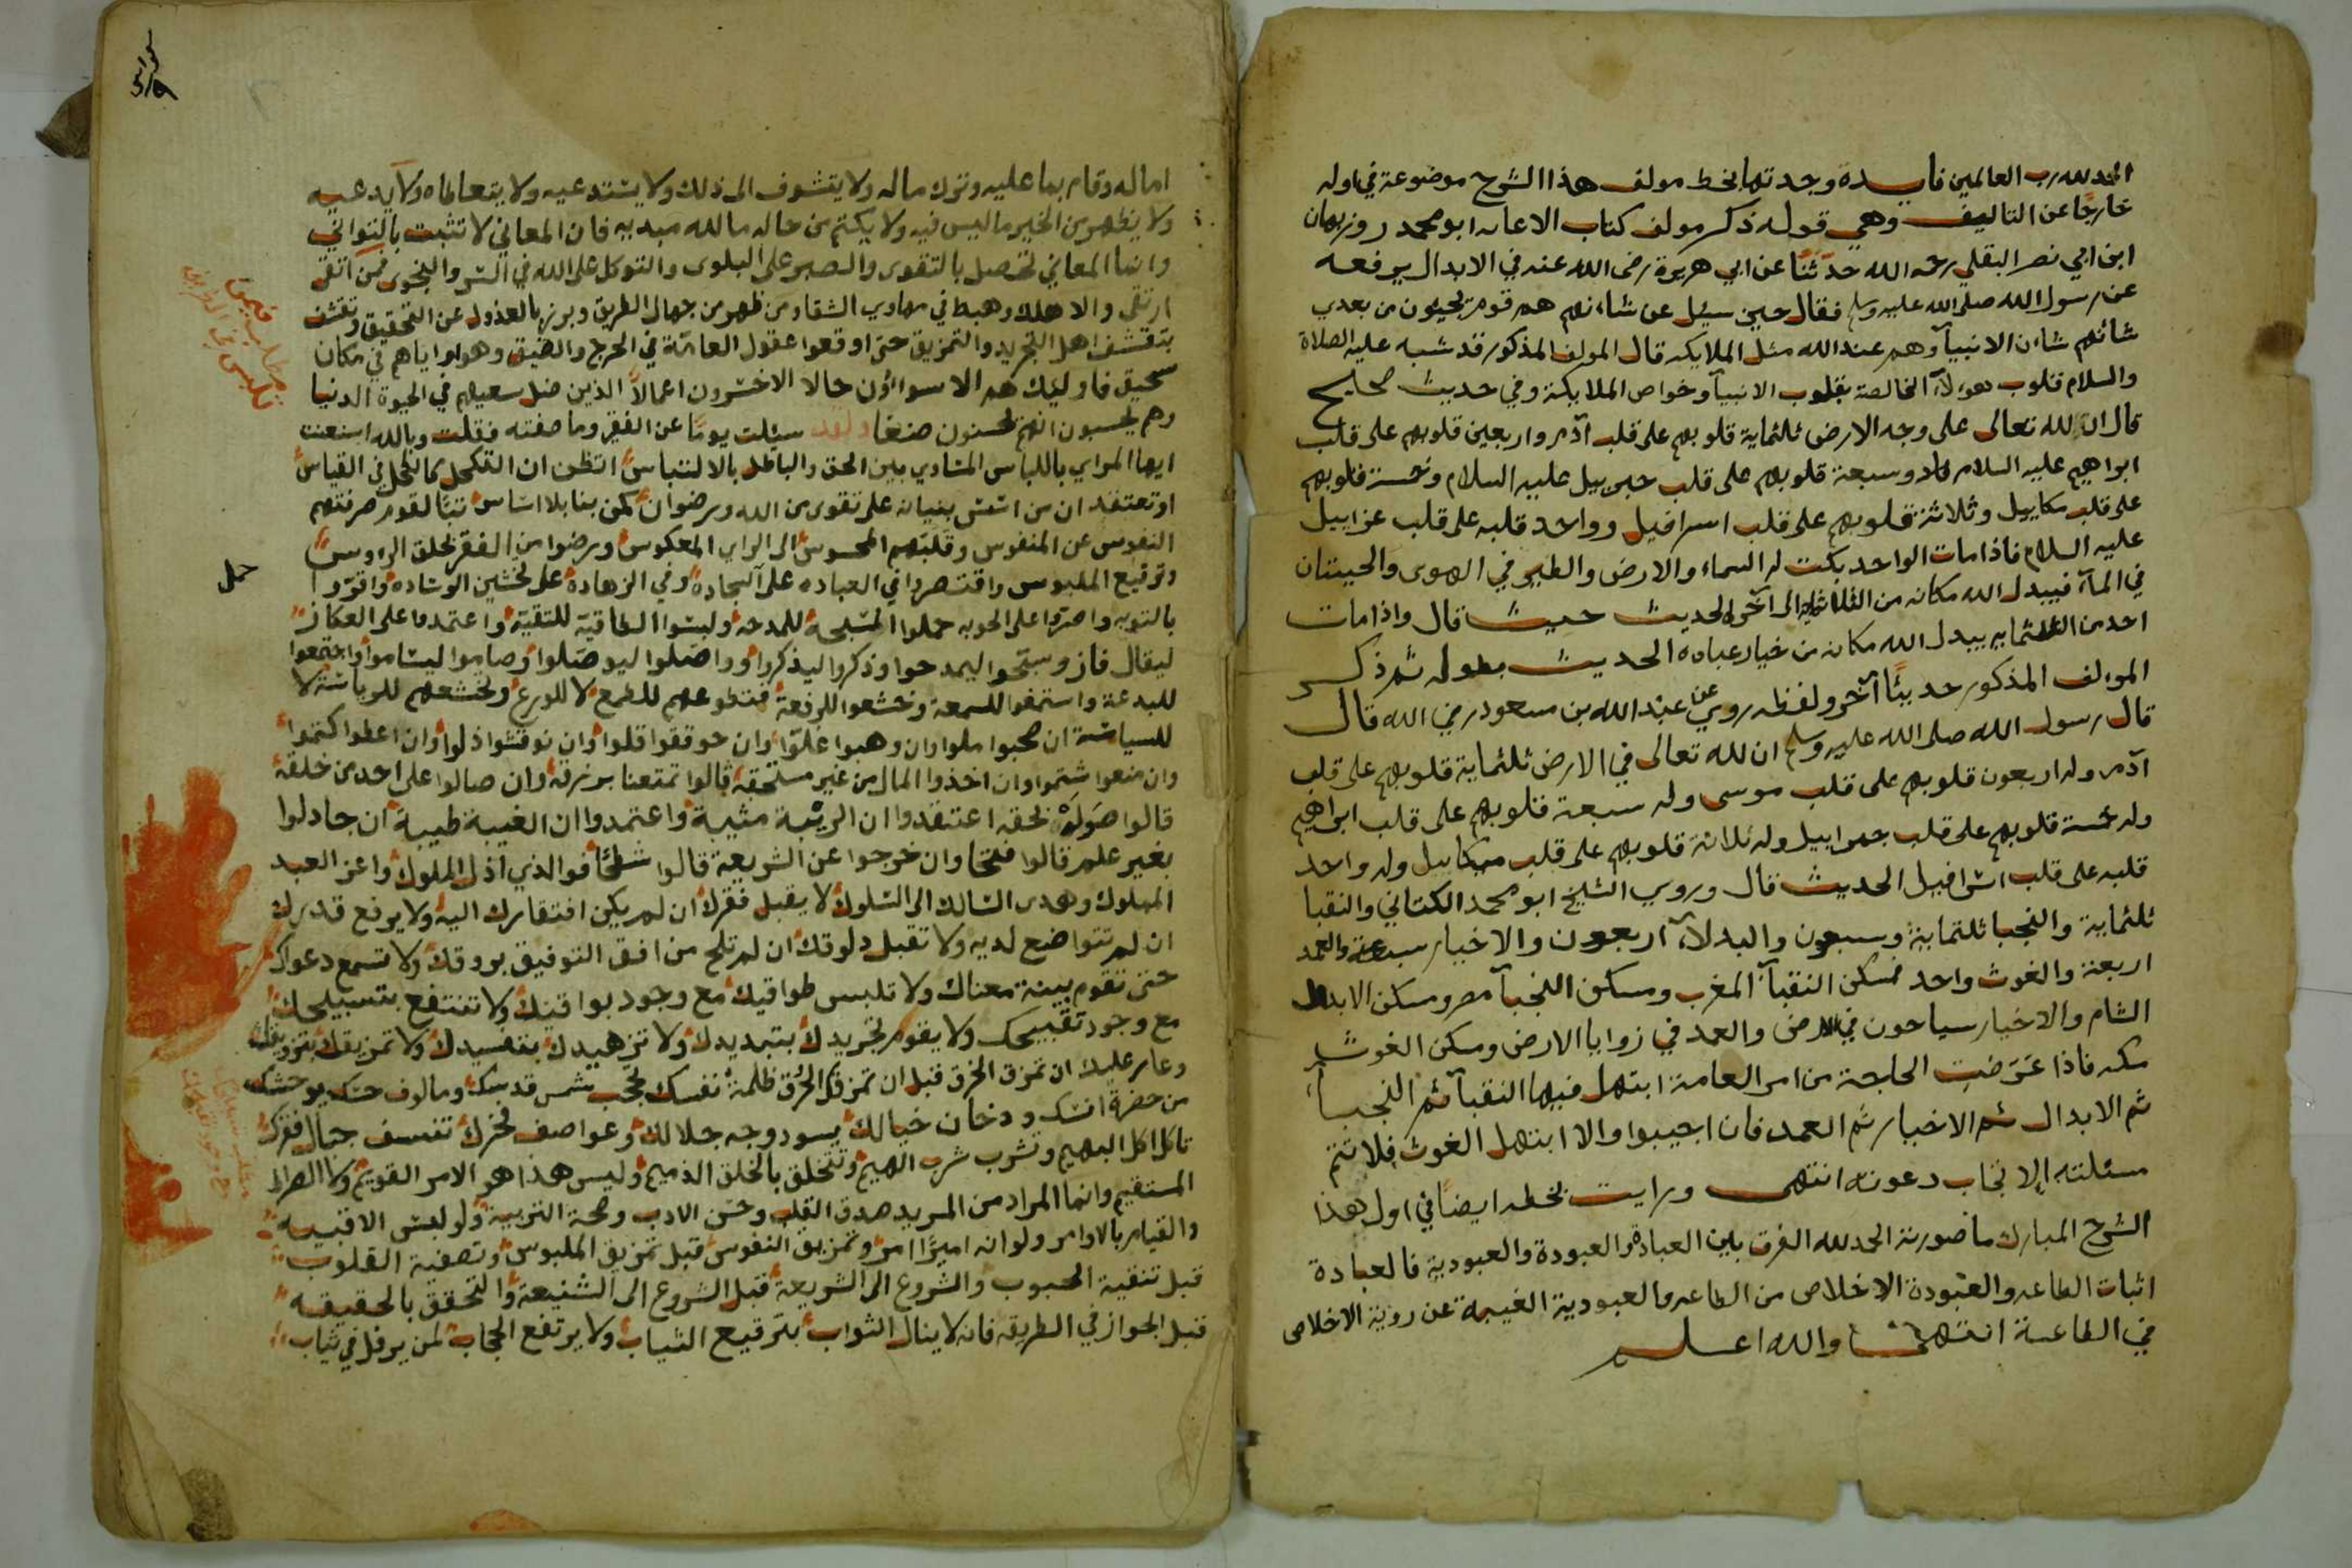 الحمد لله رب العالمين فايسدة وجدتها بخط مولف هذا الشرح موضوعة في اوله
خارجًا عن التاليف وهي قوله ذكر مولف كتاب الاعانه ابو محمد روزبهان
ابن ابي نصر البقلي رحمه الله حدثنا عن ابي هريرة رضى الله عنه في الابدال يرفعه
عن رسول الله صلى الله عليه وسلم فقال حين سيئل عن شاءنهم هم قوم يجيون من بعدي
شانهم شاءن الانبيآ وهم عند الله مثل الملايكه قال المولف المذكور قد شبه عليه الصلاة
والسلام قلوب هولآء الخالصة بقلوب الانبيآ وخواص الملايكة وفي حديث صحايح
قال ان لله تعالى على وجه الارض ثلثماية قلوبهم على قلب آدم واربعين قلوبهم على قلب
ابراهيم عليه السلام وسبعة قلوبهم على قلب جبرييل عليه السلام وخمسة قلوبهم
على قلب مكاييل وثلاثة قلوبهم على قلب اسرافيل وواحد قلبه على قلب عزاييل
عليه السلام فاذا مات الواحد بكت له السماء والارض والطير في الهوى والحيتان
في المآء فيبدل الله مكانه من الثلاثة الى آخر الحديث حيث قال واذا مات
احد من الثلثمايه يبدل الله مكانه من خيار عباده الحديث بطوله ثم ذكر
الموالف المذكور حديثًا آخر ولفظه روي عن عبد الله بن مسعود رضي الله قال
قال رسول الله صلى الله عليه وسلم ان لله تعالى في الارض ثلثماية قلوبهم على قلب
آدم وله اربعون قلوبهم على قلب موسى وله سبعة قلوبهم على قلب ابراهيم
وله خمسة قلوبهم على قلب جبراييل وله ثلاثة قلوبهم على قلب ميكاييل وله واحد
قلبه على قلب اسرافيل الحديث قال وروي الشيخ ابو محمد الكتاني والنقبا
ثلثماية والنجبا ثلثماية وسبعون والبدلآء اربعون والاخيار سبعة والعمد
اربعة والغوث واحد فمسكن النقبآء المغرب ومسكن النجبآ مصر ومسكن الابدال
الشام والاخيار سياحون في الارض والعمد في زوايا الارض ومسكن الغوث
مكه فاذا عرضت الحاجة من امر العامة ابتهل فيها النقبآ ثم النجبآ
ثم الابدال ثم الاخيار ثم العمد فان اجيبوا والا ابتهل الغوث فلا تتم
مسئلته الا تجاب دعوته انتهى ورايت بخطه ايضًا في اول هذا
الشرح المبارك ما صورته الحمد لله الفرق بين العبادة والعبودة والعبودية فالعبادة
اثبات الطاعه والعبودة الاخلاص من الطاعه والعبودية الغيبة عن روية الاخلاص
في الطاعة انتهى والله اعلم
اماله وقام بما عليه وترك ماله ولا يتشوف الى ذلك ولا يستدعيه ولا يتعاطاه ولا يدعيه
ولا يظهر من الخير ما ليس فيه ولا يكتم من حاله ما لله مبديه فان المعاني لا تثبت بالتواني
وانما المعاني تحصل بالتقوى والصبر على البلوى والتوكل على الله في السر والنجوى فمن اتقى
ارتقى والا هلك وهبط في مهاوي الشقا ومن ظهر من جهال الطريق وبرز بالعدول عن التحقيق وتقشف
بتقشف اهل التجريد والتمزيق حتى اوقعوا عقول العامة في الحرج والضيق وهووا واياهم في مكان
سحيق فاوليك هم الاسواؤن حالا الاخسرون اعمالاً الذين ضل سعيهم في الحيوة الدنيا
وهم يحسبون انهم يحسنون صنعًا ولقد سيئلت يومًا عن الفقير وما صفته فقلت وبالله استعنت
ايها المراي باللباس المساوي بين الحق والباطل بالالتباس اتظن ان التكحل كالكحل في القياس
او تعتقد ان من اسس بنيانه على تقوى من الله ورضوان كمن بنا بلا اساس تبًا لقوم صرفتهم
النفوس عن المنفوس وقلبتهم المحسوس الى الراي المعكوس ورضوا من الفقر بحلق الروس
وترقيع الملبوس واقتصروا في العباده على السجادة وفي الزهادة على تخشين الوساده واقروا
بالتوبه واصروا على الحوبه حملوا المسبحة للمدحة ولبسوا الطاقية للتقية واعتمدوا على العكاز
ليقال فاز وسبحوا ليمدحوا وذكروا ليذكروا وواصلوا ليوصلوا وصاموا ليساموا واجتمعوا
للبدعة واستمعوا للسمعة وخشعوا للرفعة فتطوعهم للطمع لا للورع وتخشعهم للرياسة لا
للسياسة ان صحبوا ملوا وان وهبوا غلوا وان حوققوا قلوا وان نوقشوا ذلوا وان اعطوا كتموا
وان منعوا شتموا وان اخذوا المال من غير مستحقه قالوا تمتعنا برزقه وان صالوا على احد من خلقه
قالوا صولة بحقه اعتقدوا ان الريبة مثيبة واعتمدوا ان الغيبة طيبة ان جادلوا
بغير علم قالوا فتحًا وان خرجوا عن الشريعة قالوا شطحًا فوالذي اذل الملوك واعز العبد
المملوك وهدى السالك الى السلوك لا يقبل فقرك ان لم يكن افتقارك اليه ولا يرفع قدرك
ان لم تتواضع لديه ولا تقبل دلوقك ان لم تلح من افق التوفيق بروقك ولا تسمع دعواك
حتى تقوم بينة معناك ولا تلبس طواقيك مع وجود بواقيك ولا تنتفع بتسبيحك
مع وجود تقبيحك ولا يقوم تجريدك بتبديدك ولا تزهيدك بتفسيدك ولا تمزيقك بتزويقك
وعار عليك ان تمزق الخرق قبل ان تمزق الحرق ظلمة نفسك تحجب شمس قدسك ومالوف حسك يوحشك
من حضرة انسك ودخان خيالك يسود وجه جلالك وعواصف فخرك تنسف جبال فقرك
تاكل اكل البهيم وتشرب شرب الهيم وتتخلق بالخلق الذميم وليس هذا هو الامر القويم ولا الصراط
المستقيم وانما المراد من المريد صدق القلب وحسن الادب وصحة التربية ولو لبس الاقبية
والقيام بالاوامر ولو انه اميرًا امر وتمزيق النفوس قبل تمزيق الملبوس وتصفية القلوب
قبل تنقية الجيوب والشروع الى الشريعة قبل الشروع الى الشنيعة والتحقق بالحقيقه
قبل الجواز في الطريقه فانه لا ينال الثواب بترقيع الثياب ولا يرتفع الحجاب لمن يرفل في ثياب